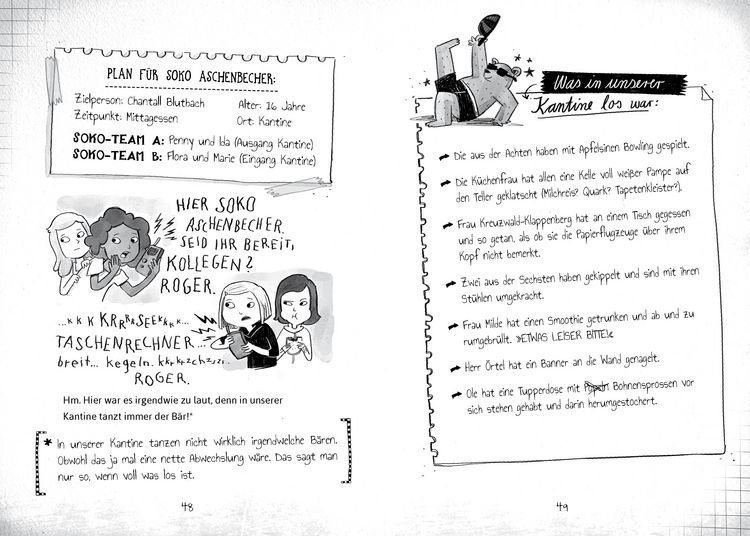 PLAN FÜR SOKO ASCHENBECHER:
Zielperson: Chantall Blutbach
Alter: 16 Jahre
Zeitpunkt: Mittagessen
Ort: Kantine
SOKO-TEAM A: Penny und Ida (Ausgang Kantine)
SOKO-TEAM B: Flora und Marie (Eingang Kantine)
HIER SOKO
ASCHENBECHER.
SEID IHR BEREIT,
KOLLEGEN?
ROGER.
...K K KRRRkSEEkkkk...
TASCHENRECHNER...
breit... kegeln. kkrkrzchzszi...
ROGER.
Hm. Hier war es irgendwie zu laut, denn in unserer
Kantine tanzt immer der Bär!*
* In unserer Kantine tanzen nicht wirklich irgendwelche Bären.
Obwohl das ja mal eine nette Abwechslung wäre. Das sagt man
nur so, wenn voll was los ist.
48
Was in unserer
Kantine los war:
Die aus der Achten haben mit Apfelsinen Bowling gespielt.
Die Küchenfrau hat allen eine Kelle voll weißer Pampe auf
den Teller geklatscht (Milchreis? Quark? Tapetenkleister?).
Frau Kreuzwald-Klappenberg hat an einem Tisch gegessen
und so getan, als ob sie die Papierflugzeuge über ihrem
Kopf nicht bemerkt.
Zwei aus der Sechsten haben gekippelt und sind mit ihren
Stühlen umgekracht.
Frau Milde hat einen Smoothie getrunken und ab und zu
rumgebrüllt. »ETWAS LEISER BITTE!«
Herr Örtel hat ein Banner an die Wand genagelt.
Ole hat eine Tupperdose mit Bohnensprossen vor
sich stehen gehabt und darin herumgestochert.
49